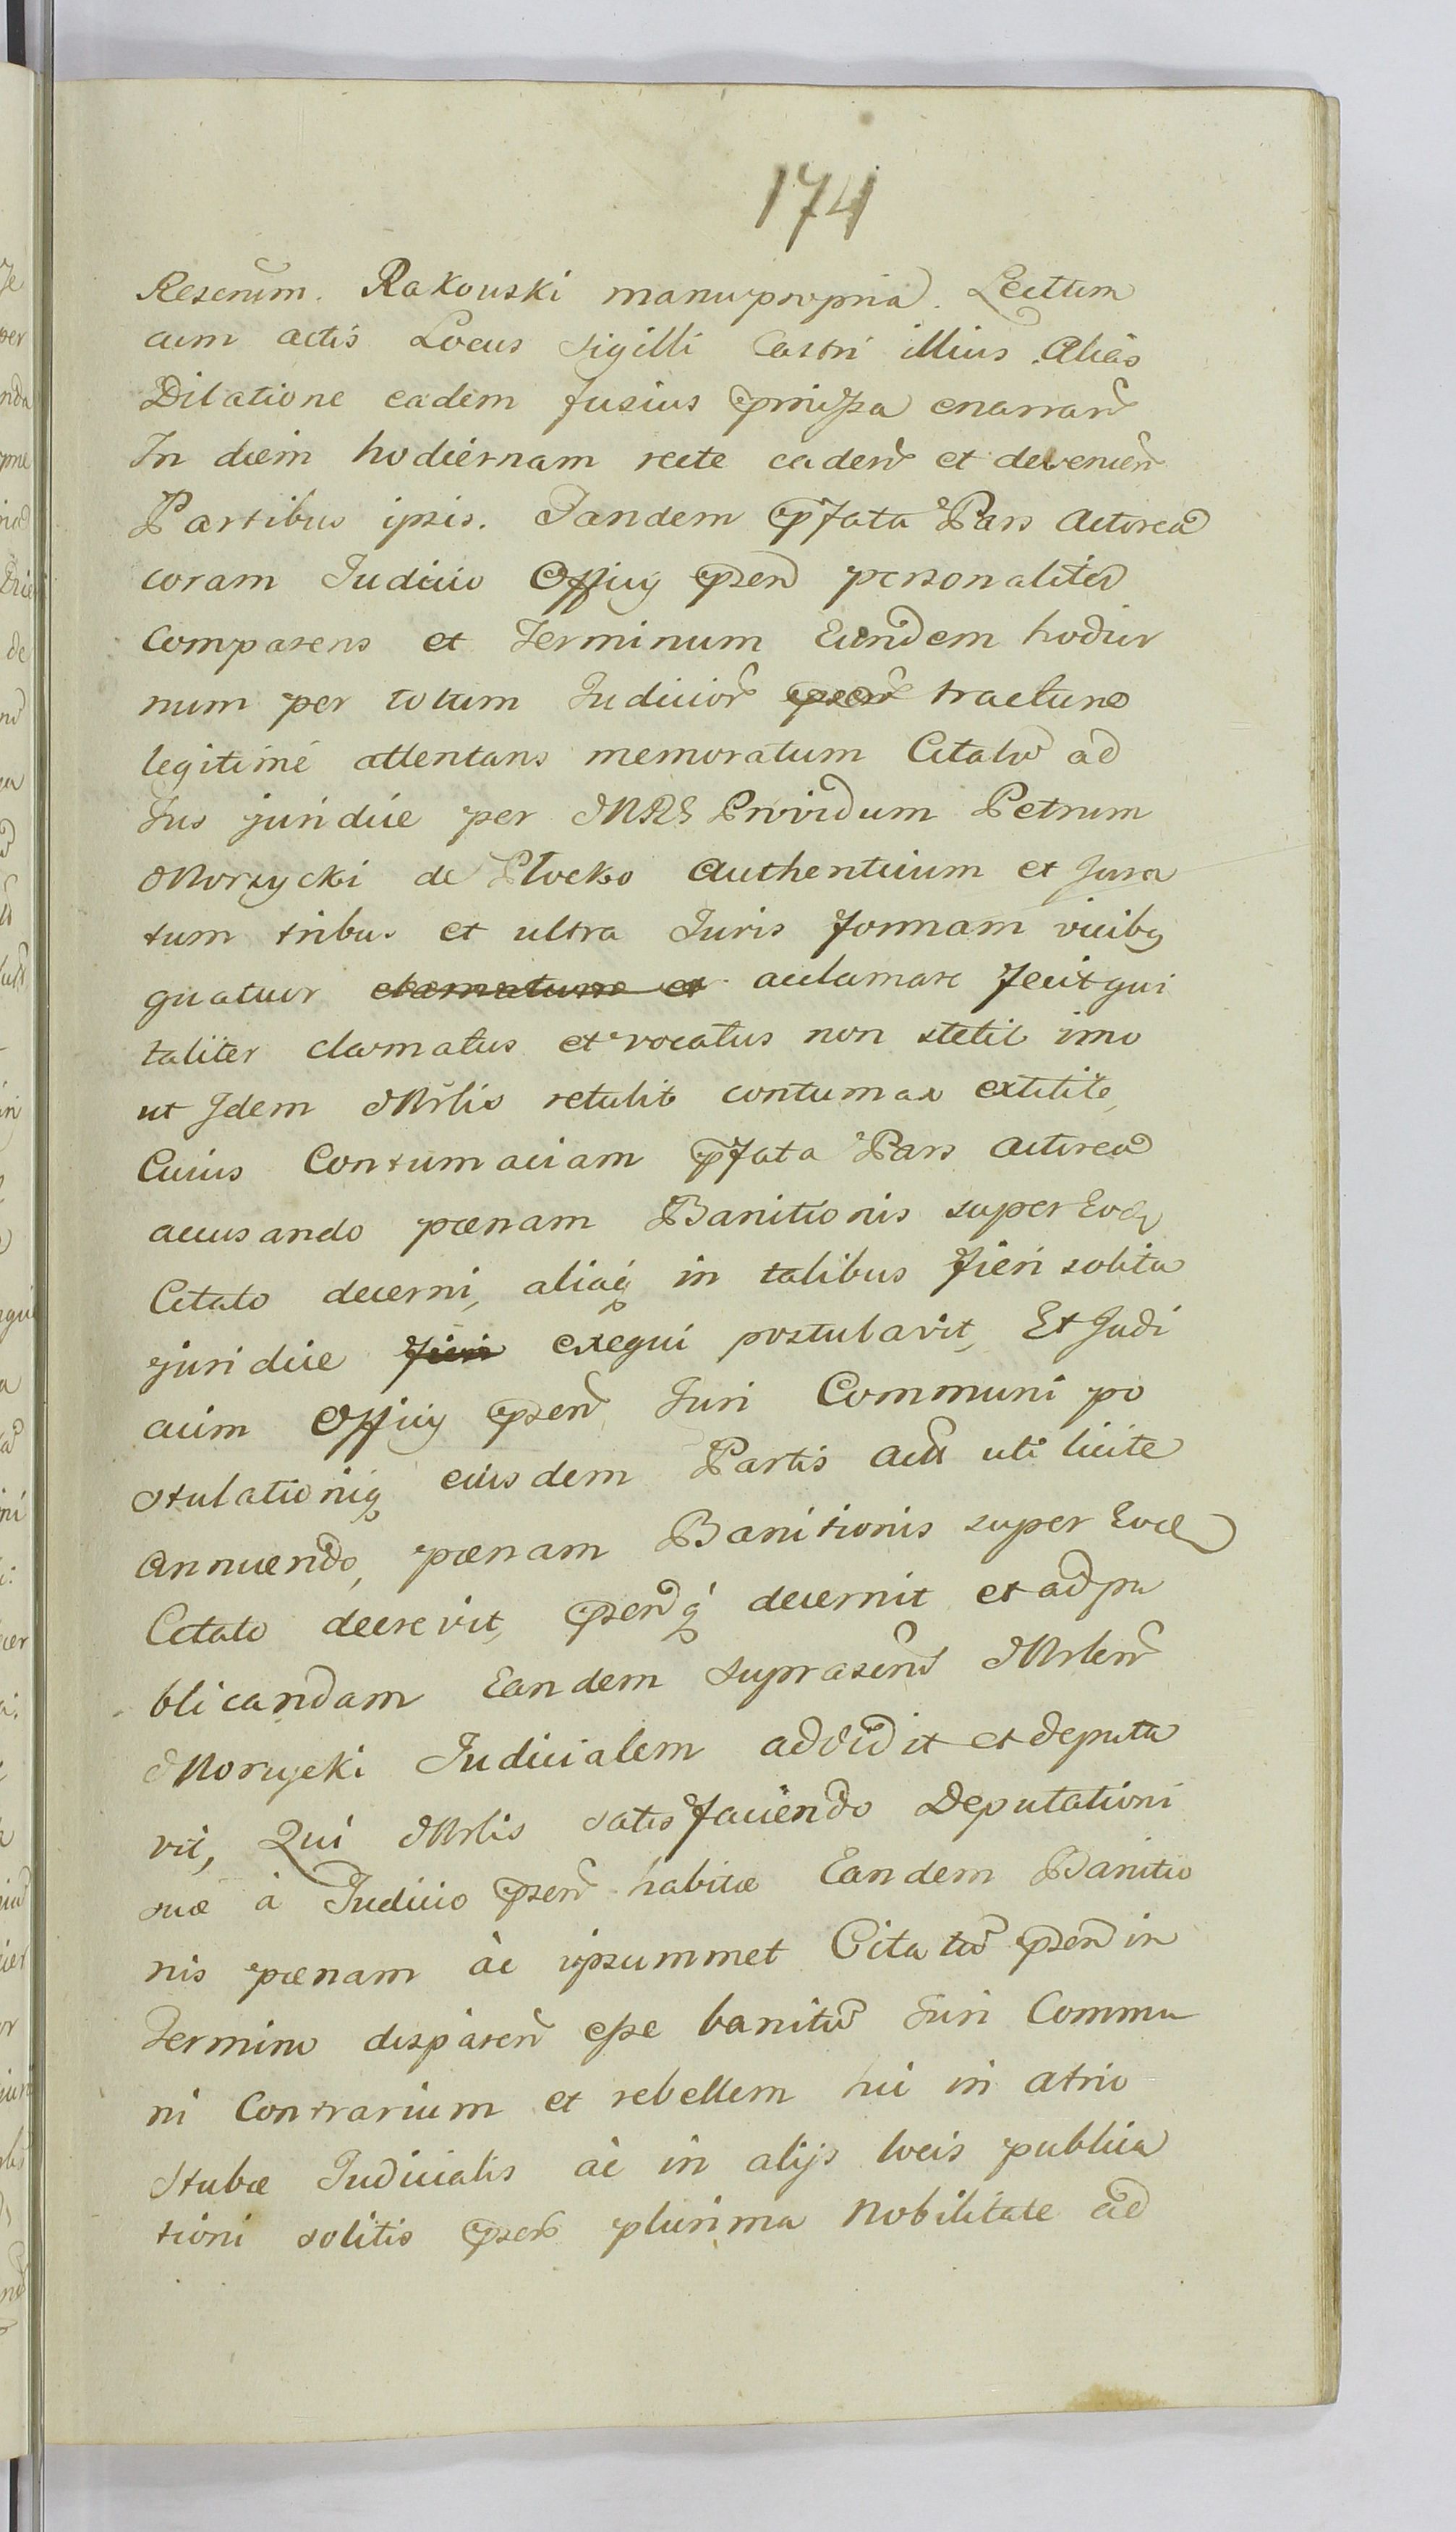 174
Reserum. Rakouski manuppria. Lecttum
cum actis Locus sigilli Castri illius Alias
Dilatione eadem fusius pmissa enarran
In diem hodiernam recte caden et devenien
Partibus ipsis. Tandem pfata Pars Actorea
coram Iudicio Officij psen personaliter
comparens et Terminum Eundem hodier
num per totum Iudicior tractum
legitime attentans memoratum Citatu ad
Jus juridice per MRS Providum Petrum
Morzycki de Plocko Authenticum et Jura
tum tribus et ultra Iuris formam vicibq
quatuor acclamare fecit qui
taliter clamatus et vocatus non stetit imo
ut Idem Mrlis retulit contumax extitit,
Cuius Contumaciam pfata Pars Actorea
accusando pænam Banitionis super Eod
Citato decerni, aliaq in talibus fieri solita
juridice fieri exequi postulavit, Et Judi
cium Officij psen Juri Communi po
stulationiq eiusdem Partis Act uti licite
Annuendo, pænam Banitionis super Eod
Citato decrevit, psenq decernit et ad pu
blicandam Eandem suprascrn Mrlem
Morzycki Iudicialem addidit et deputa
vit, Qui Mrlis satisfaciendo Deputationi
suæ à Judicio psen habitæ Eandem Banitio
nis pænam ac ipsummet Citatu psen in
Termino disparen esse banitu Juri Commu
ni Contrarium et rebellem hic in atrio
stubæ Judicialis ac in alijs locis publica
tioni solitis psen plurima Nobilitate ad